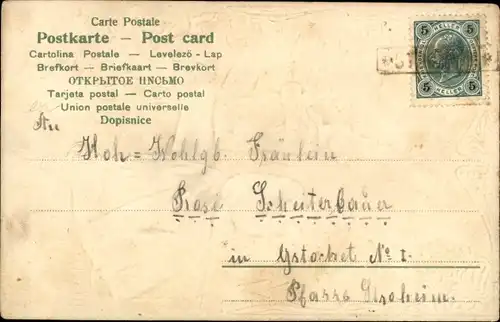 Carte Postale
Postkarte — Post card
Cartolina Postale — Levelező-Lap
Brefkort — Briefkaart — Brevkort
ОТКРЫТОЕ ПИСЬМО
Tarjeta postal — Carto postal
Union postale universelle
Dopisnice
5 HELLER 5
5 HELLER 5
An
Hoh=Wohlgb. Fräulein
Rosi Scheiterbauer
in Gstocket No 1.
Pfarre Stroheim.